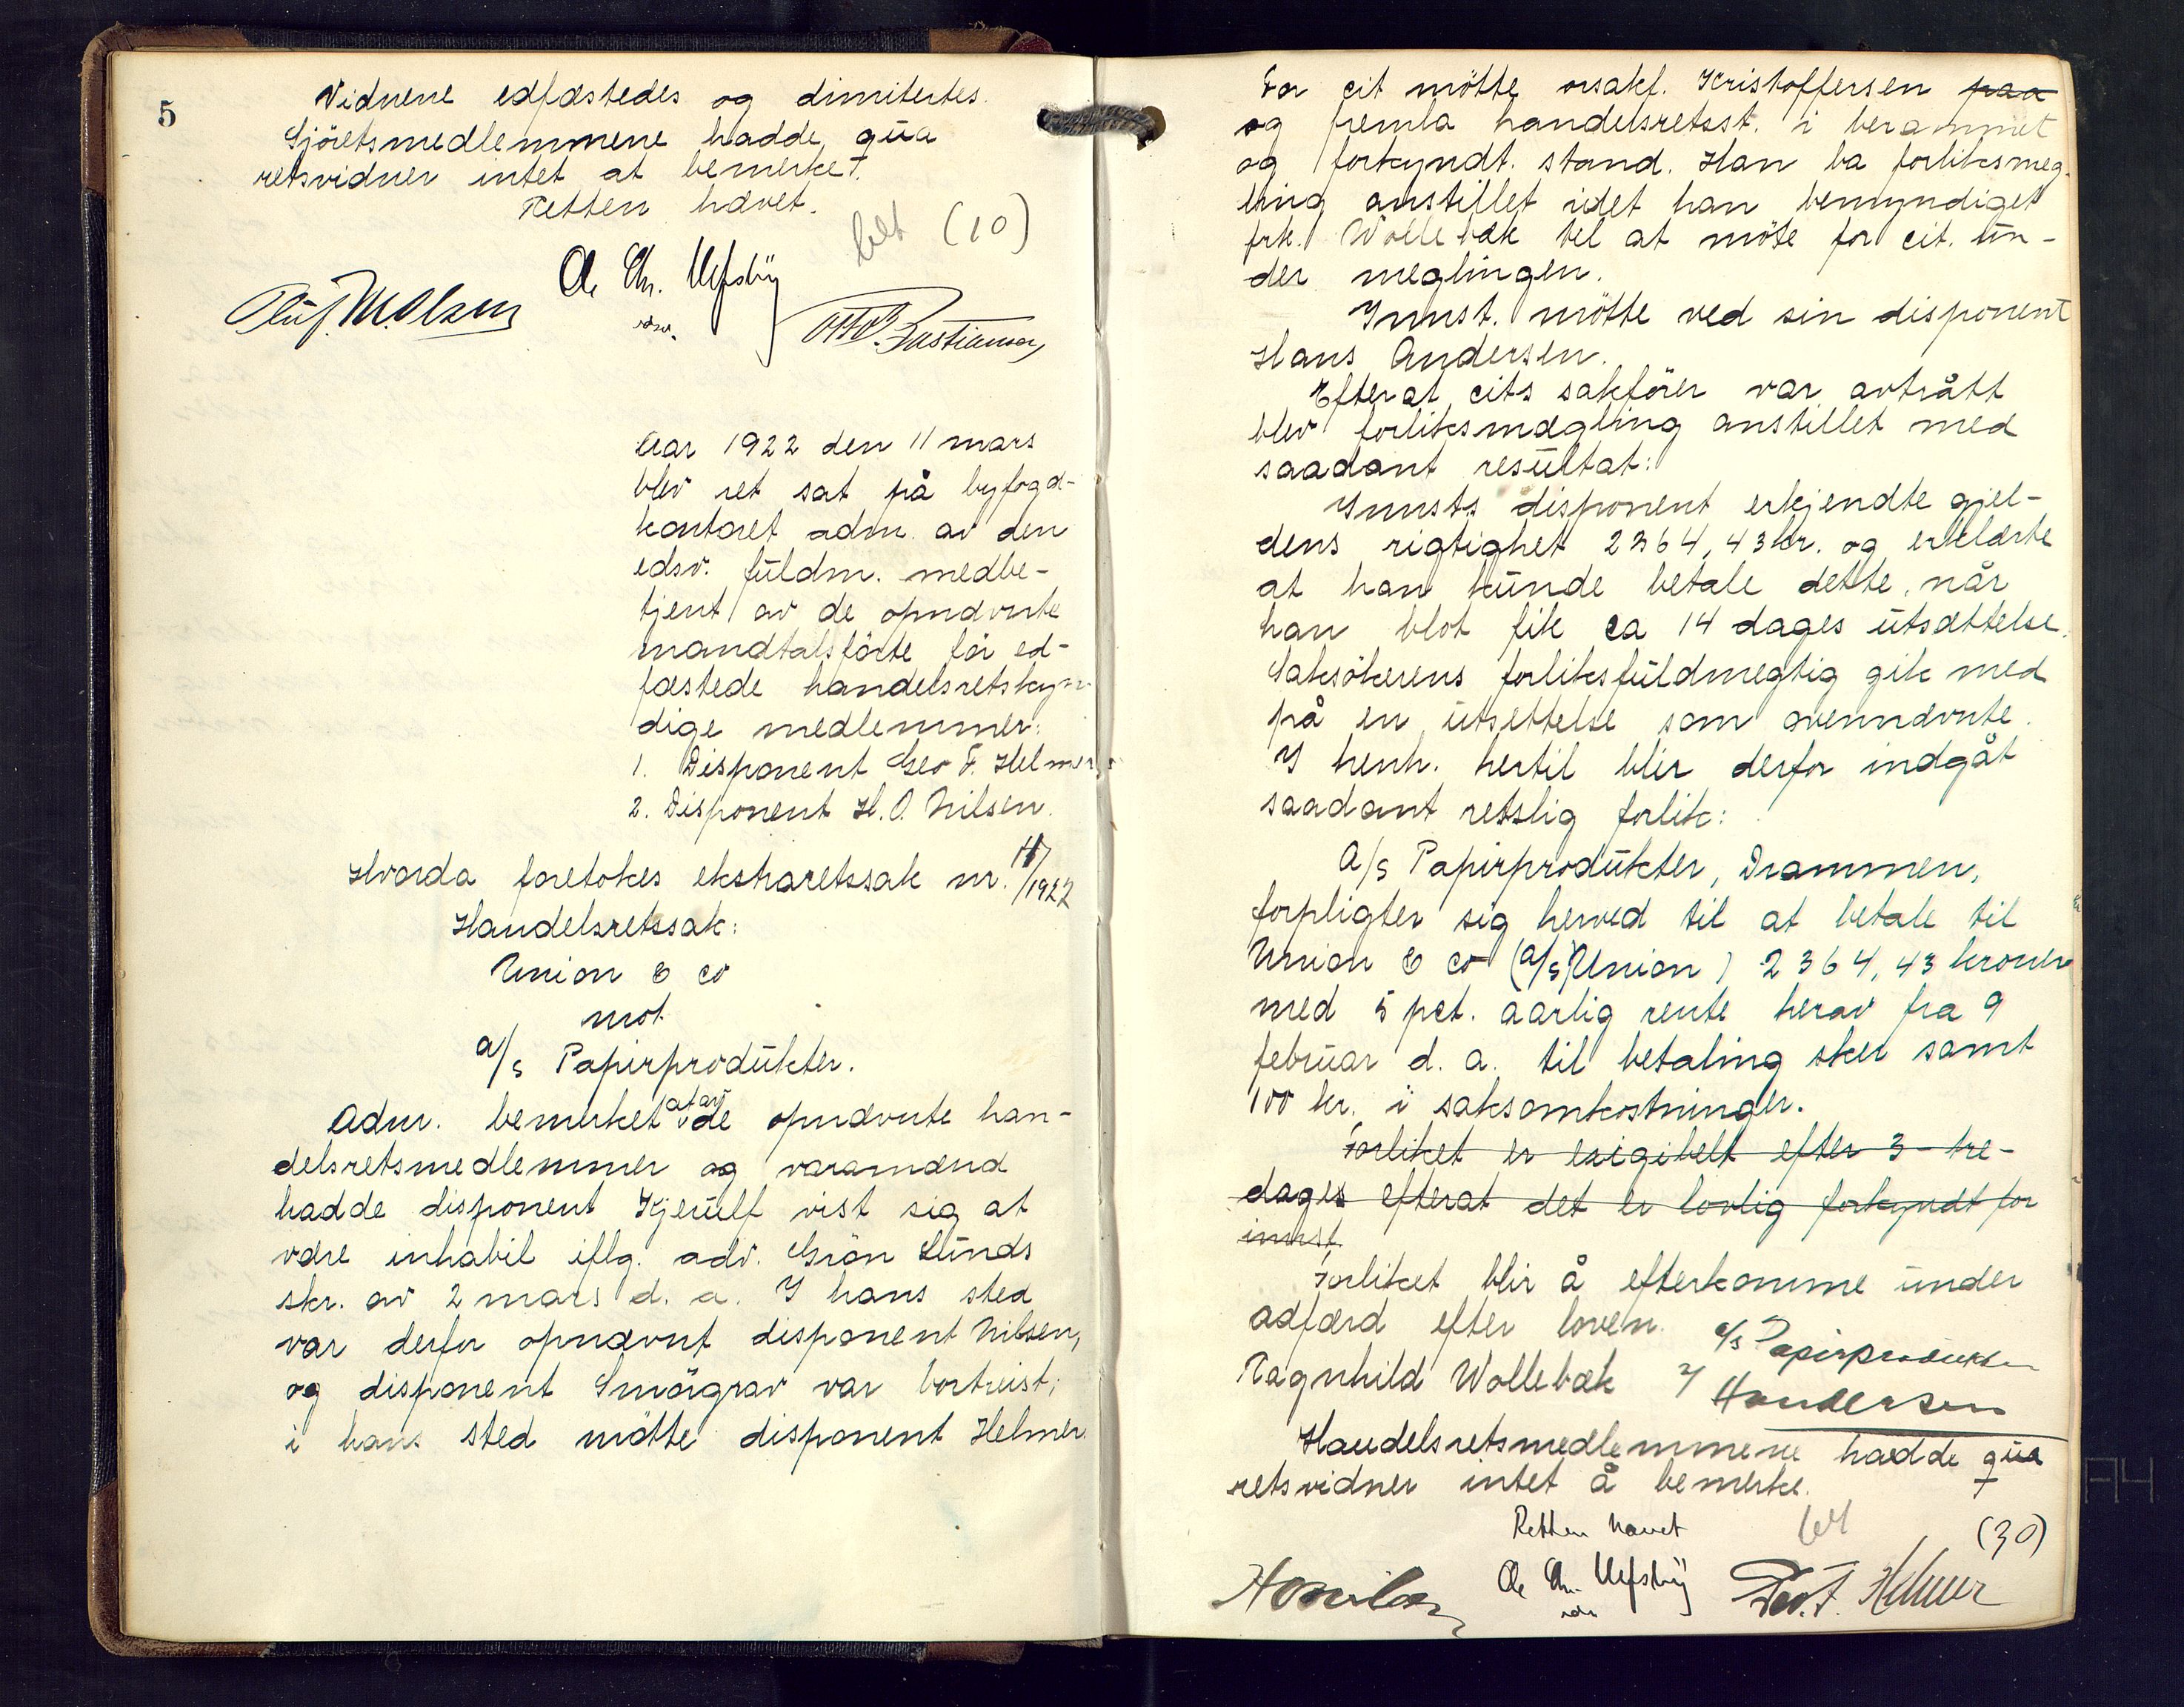 5
Vidnene edfæstedes og dimitertes.
Sjöretsmedlemmene hadde qua
retsvidner intet at bemerket.
Retten hævet.
bet (10)
Ole Chr. Ulfsby
Oluf M. Olsen
Otto Bastiansen
Aar 1922 den 11 mars
blev ret sat på byfogd-
kontoret adm. av den
edsv. fuldm. medbe-
tjent av de opnævnte
mandtalsförte för ed-
fæstede handelsretskyn-
dige medlemmer:
1. Disponent Geo F. Helmer
2. Disponent H. O. Nilsen.
Hvorda foretokes ekstraretssak nr. 11/1922
Handelsretssak:
Union & co
mot
a/s Papirprodukter.
Adm. bemerket at av de opnævnte han-
delsretsmedlemmer og varamænd
hadde disponent Kjerulf vist sig at
være inhabil iflg. adv. Grön Lunds
skr. av 2 mars d. a. I hans sted
var derfor opnævnt disponent Nilsen,
og disponent Smörgrav var bortreist;
i hans sted mötte disponent Helmer.
For cit mötte orsakf. Kristoffersen paa
og fremla handelsretsst. i berammet
og forkyndt. stand. Han ba forliksmeg-
ling anstillet idet han bemyndiget
frk. Wollebæk tel at möte for cit. un-
der meglingen.
Innst. mötte ved sin disponent
Hans Andersen.
Efterat cits sakförer var avtrått
blev forliksmægling anstillet med
saadant resultat:
Innsts disponent erkjendte gjel-
dens rigtighet 2364,43 kr. og erklærte
at han kunde betale dette, når
han blot fik ca 14 dages utsættelse.
Saksökerens forliksfuldmegtig gik med
på en utsettelse som ovennævnte.
I henh. hertil blir derfor indgåt
saadant retslig forlik:
A/s Papirprodukter, Drammen,
forpligter sig herved til at betale til
Union & co (a/s Union) 2364,43 kroner
med 5 pct. aarlig rente herav fra 9
februar d. a. til betaling sker samt
100 kr. i saksomkostninger.
Forliket er exigibelt efter 3 - tre -
dages efterat det er lovlig forkyndt for
innst.
Forliket blir å efterkomme under
adfærd efter loven.
a/s Papirprodukter
Ragnhild Wollebæk
HAndersen
Handelsretsmedlemmene hadde qua
retsvidner intet å bemerke.
Retten hævet
bet (30)
HONilsen
Ole Chr. Ulfsby
Geo. F. Helmer